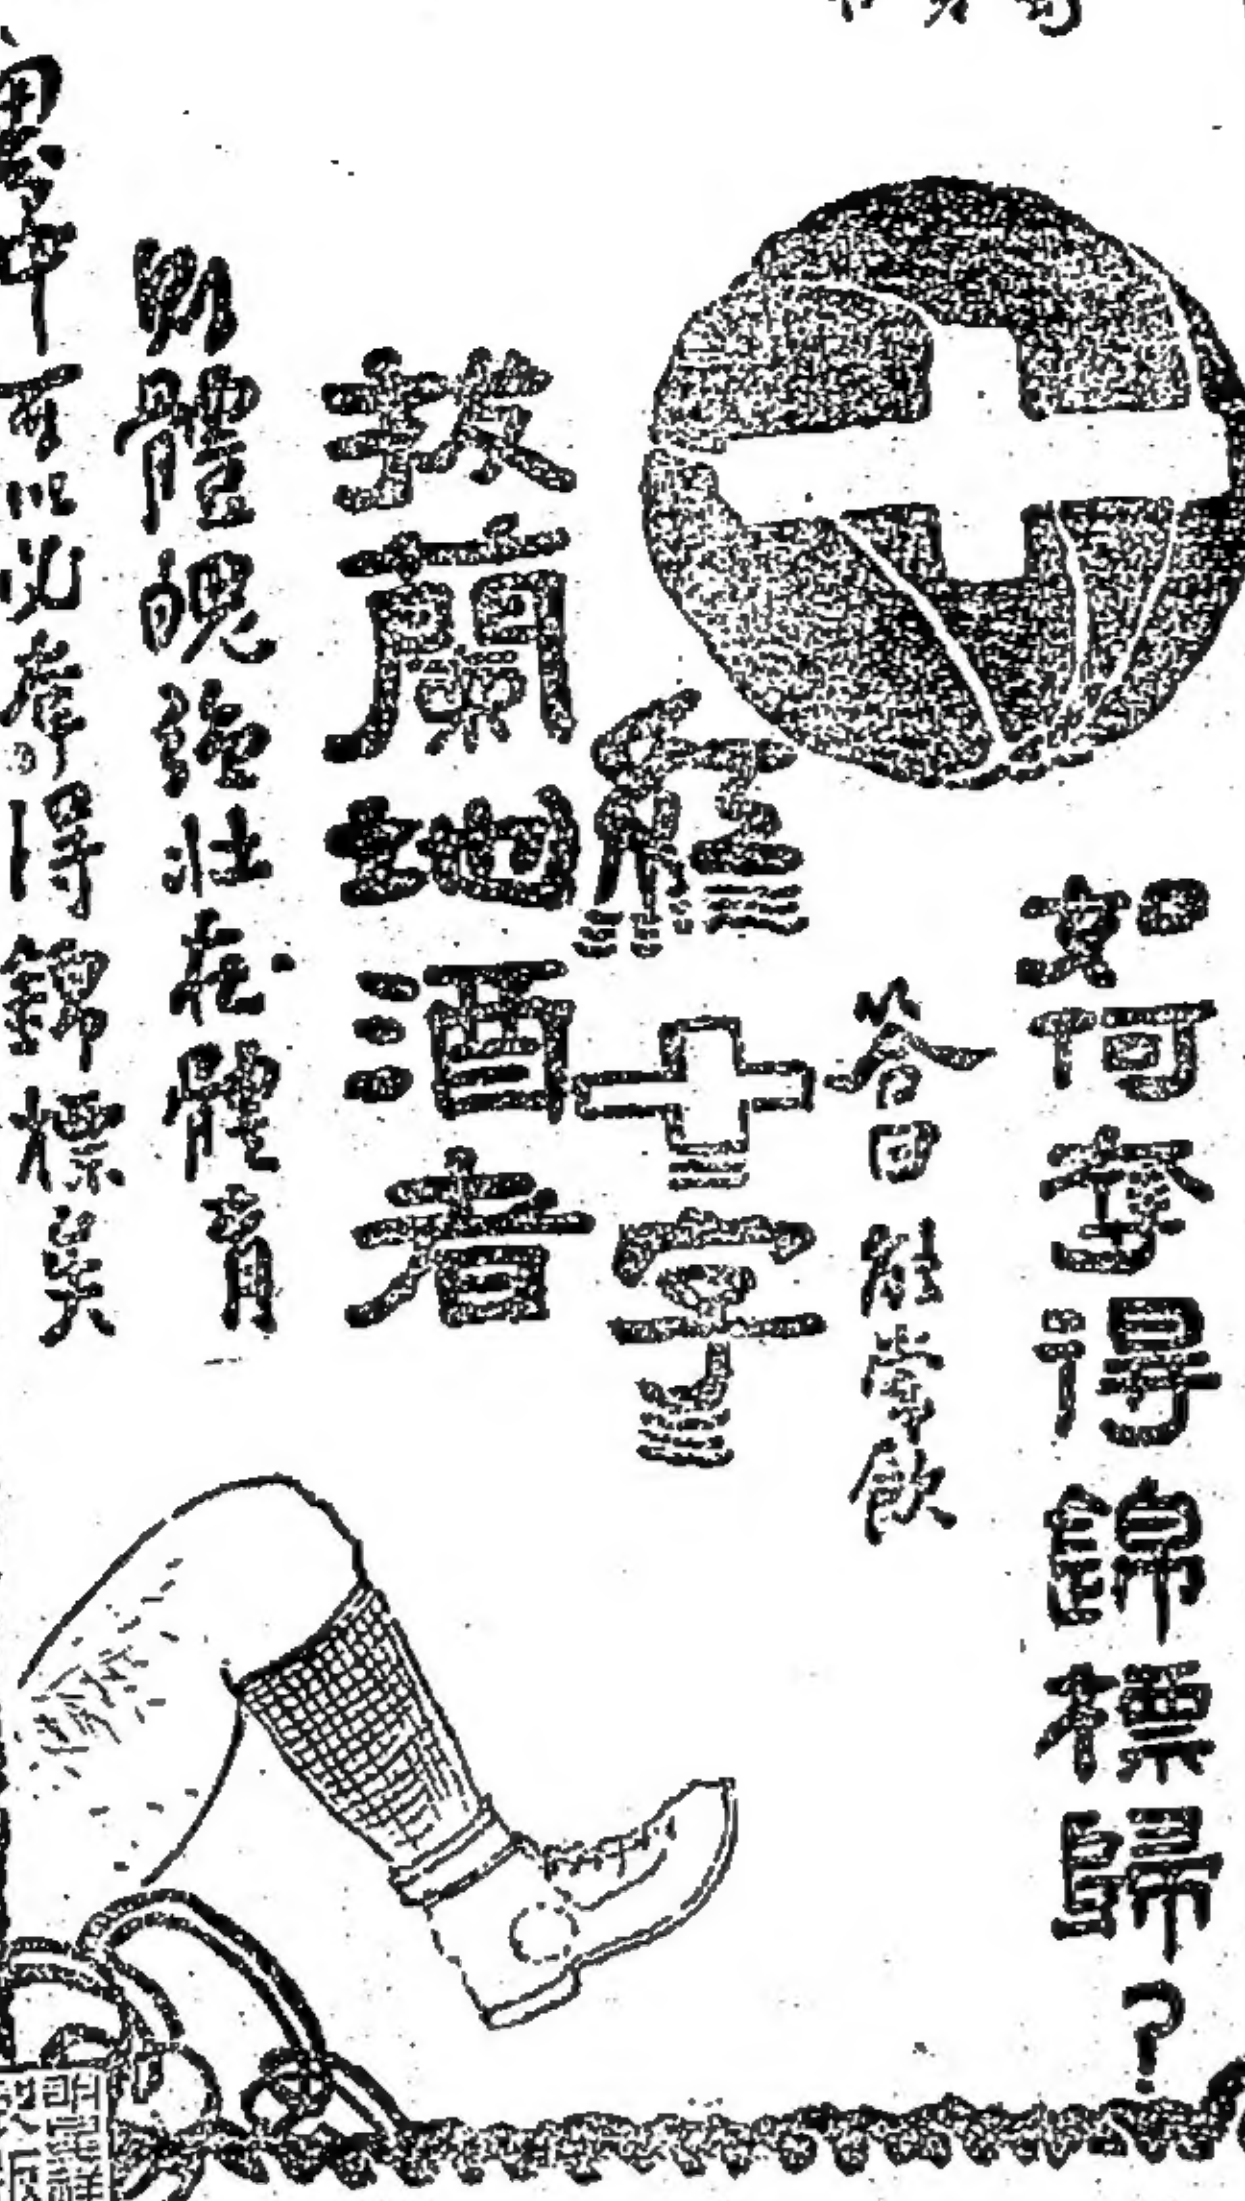 如何奪得錦標歸?
答曰 能常飲
紅十字
拔蘭地酒者
則體魄強壯在體育
界中可以必奪得錦標矣